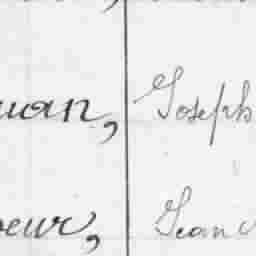 uan, Joseph
oeur, Jean